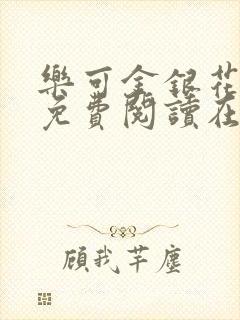 樂可金銀花
免費閱讀在
顧我芊塵